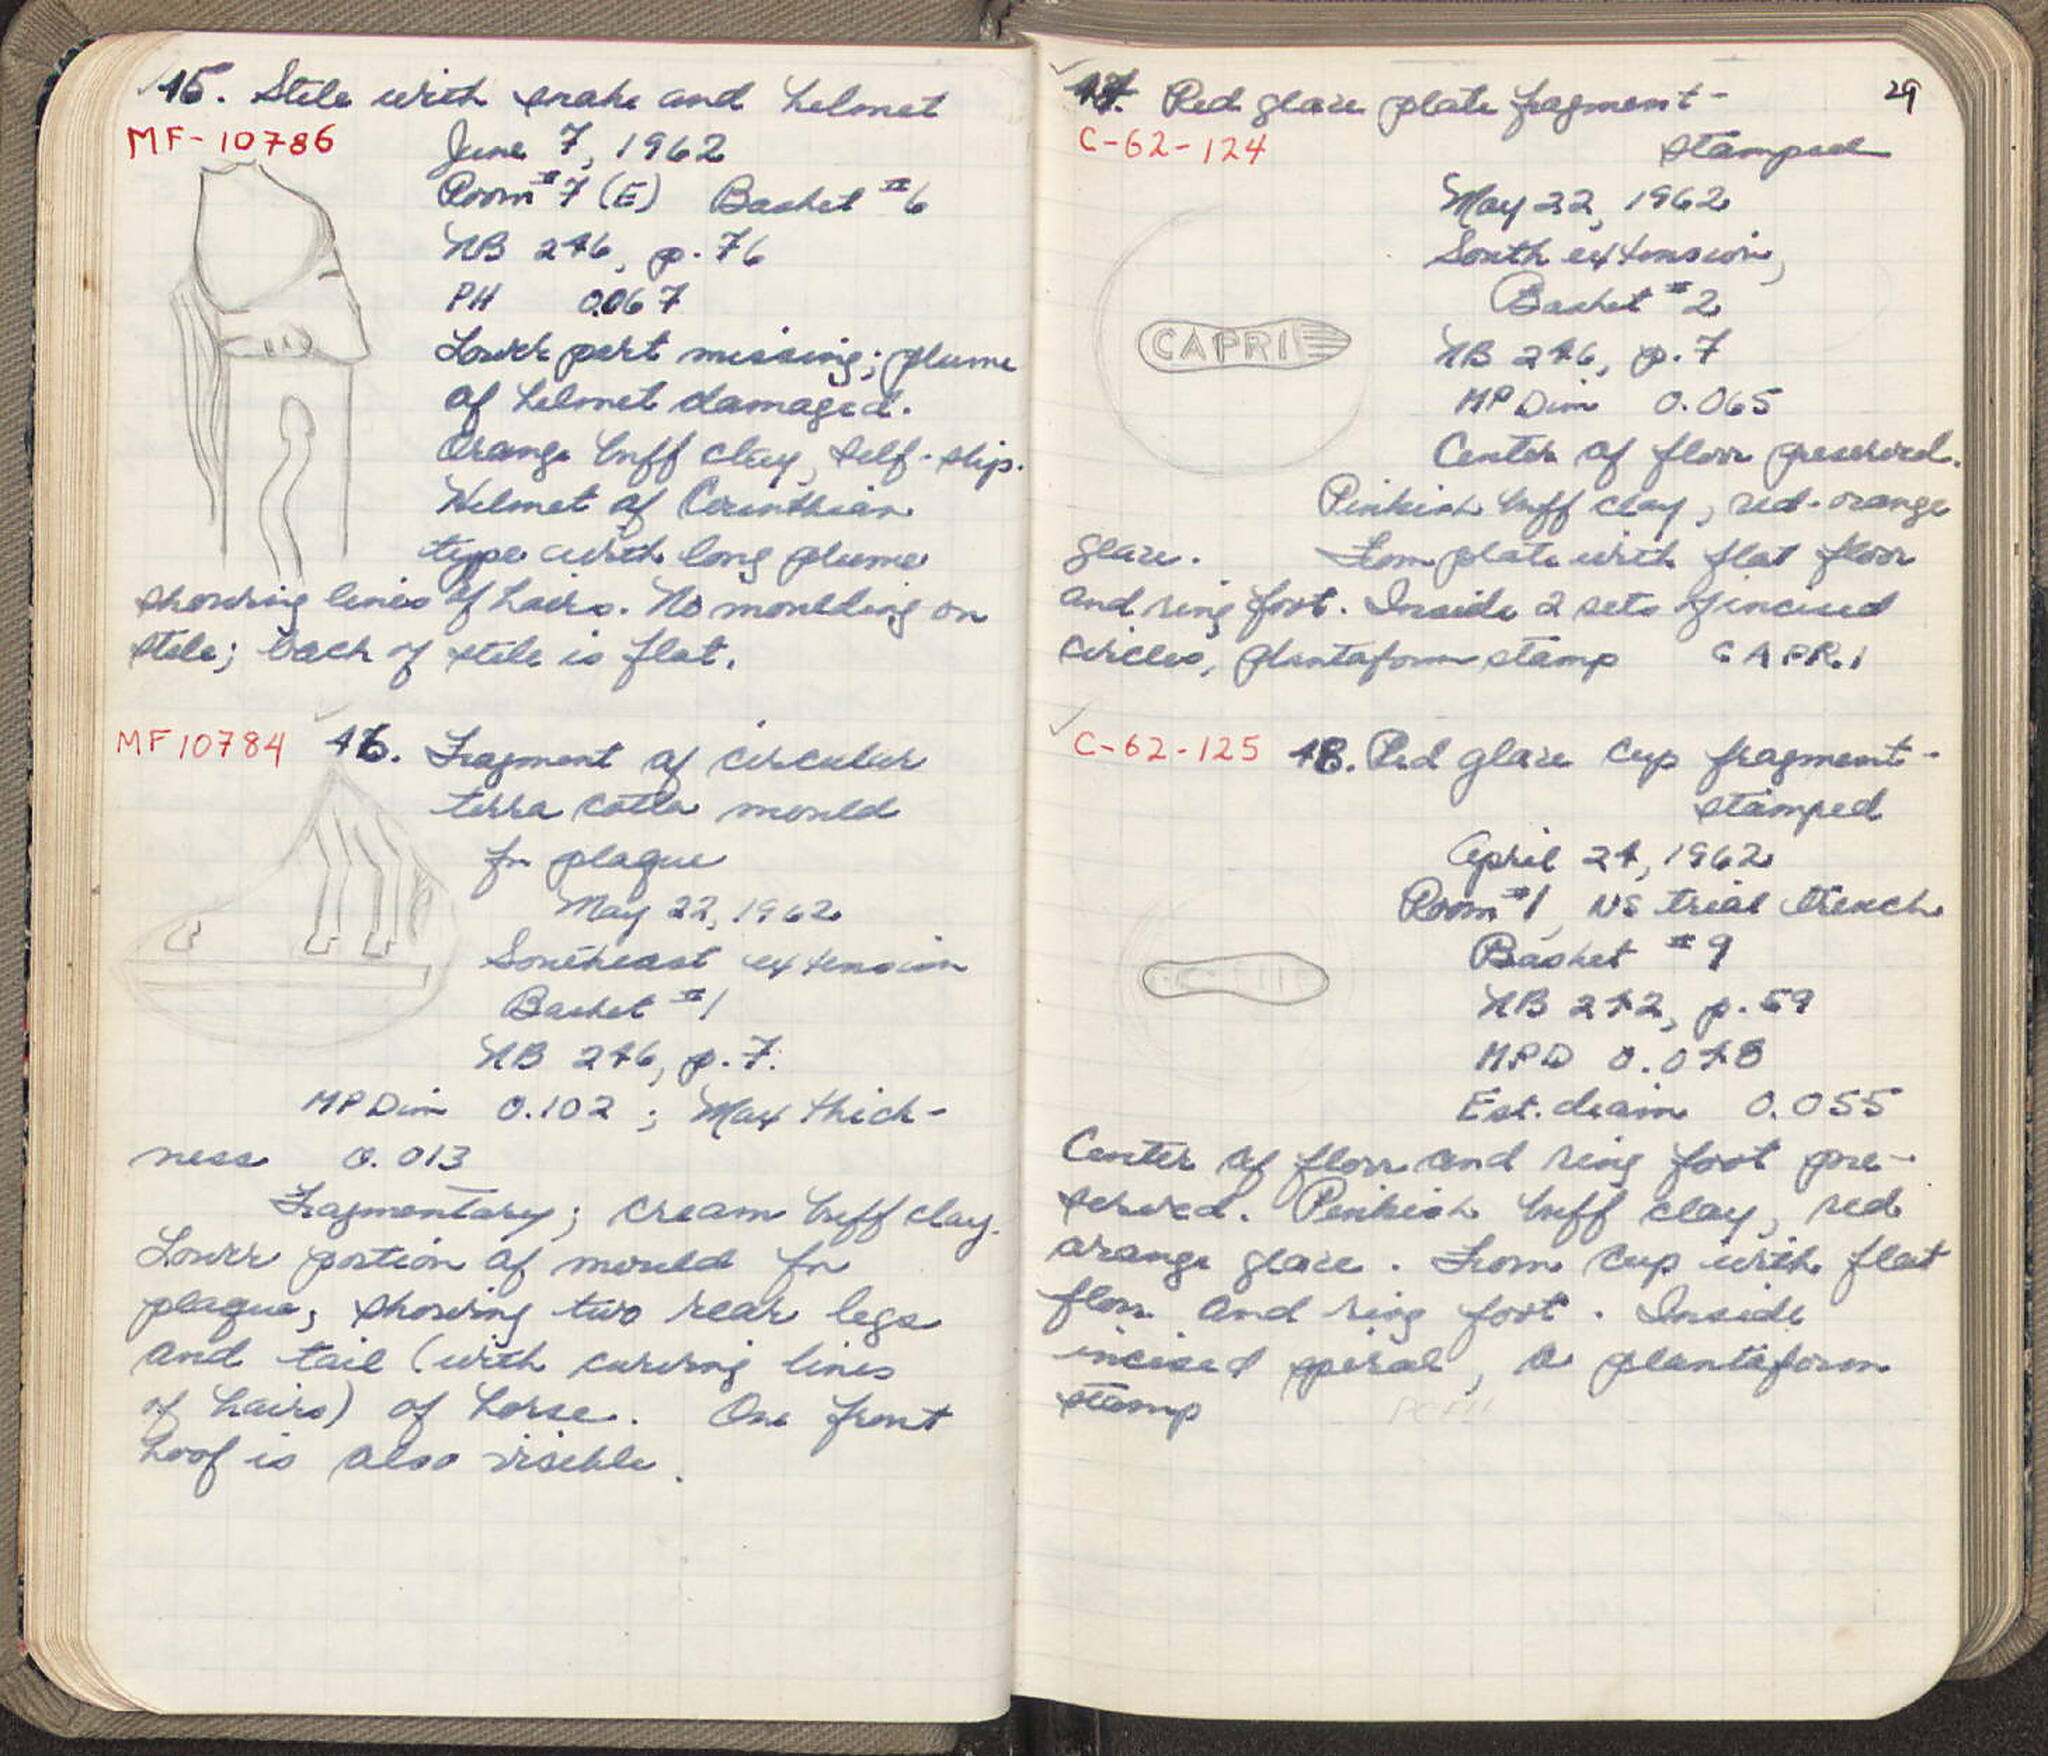 45. Stele with snake and helmet
MF-10786
June 7, 1962
Room #7 (E) Basket #6
NB 246, p. 76
PH 0.067
Lower part missing; plume
of helmet damaged.
Orange buff clay, self-slip.
Helmet of Corinthian
type with long plume
showing lines of hairs. No moulding on
stele; back of stele is flat.
MF 10784 46. Fragment of circular
terra cotta mould
for plaque
May 22, 1962
Southeast extension
Basket #1
NB 246, p. 7.
MP Dim 0.102 ; Max thick-
ness 0.013
Fragmentary; cream buff clay.
Lower portion of mould for
plaque, showing two rear legs
and tail (with curving lines
of hairs) of horse. One front
hoof is also visible.
29
47. Red glaze plate fragment-
C-62-124
stamped
May 22, 1962
South extension,
Basket #2
CAPRI
NB 246, p. 7
MP Dim 0.065
Center of floor preserved.
Pinkish buff clay, red-orange
glaze. From plate with flat floor
and ring foot. Inside 2 sets of incised
circles, plantaform stamp CAPRI
C-62-125 48. Red glaze cup fragment-
stamped
April 24, 1962
Room #1, NS trial trench
Basket #9
NB 242, p. 59
MPD 0.048
Est. diam 0.055
Center of floor and ring foot pre-
served. Pinkish buff clay, red
orange glaze. From cup with flat
floor and ring foot. Inside
incised spiral, a plantaform
stamp